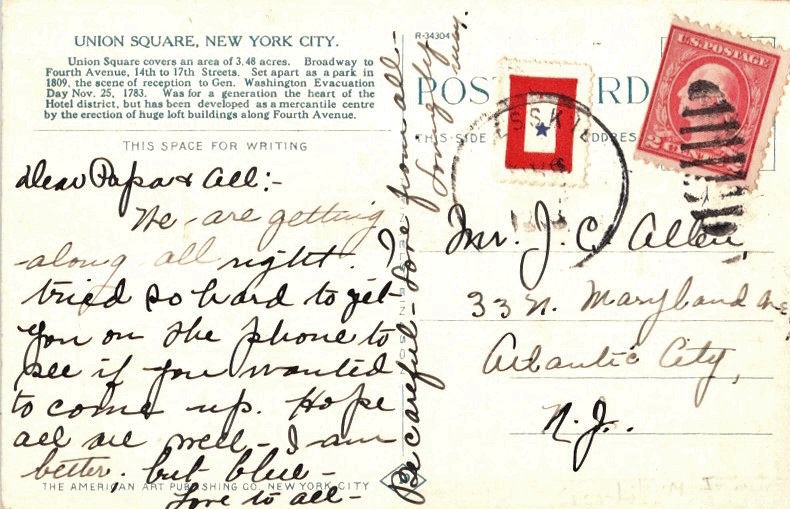 UNION SQUARE, NEW YORK CITY.
Union Square covers an area of 3.48 acres. Broadway to
Fourth Avenue, 14th to 17th Streets. Set apart as a park in
1809, the scene of reception to Gen. Washington Evacuation
Day Nov. 25, 1783. Was for a generation the heart of the
Hotel district, but has been developed as a mercantile centre
by the erection of huge loft buildings along Fourth Avenue.
THIS SPACE FOR WRITING
Dear Papa & all:-
We are getting
along all right. I
tried so hard to get
you on the phone to
see if you wanted
to come up. Hope
all are well - I am
better, but blue -
Love to all -
THE AMERICAN ART PUBLISHING CO. NEW YORK CITY
Be careful - Love from all -
R-34304
POS RD
THIS SIDE ADDRES
U.S. POSTAGE
2
Mr. J. C. Allen
33 N. Maryland Ave
Atlantic City,
N.J.